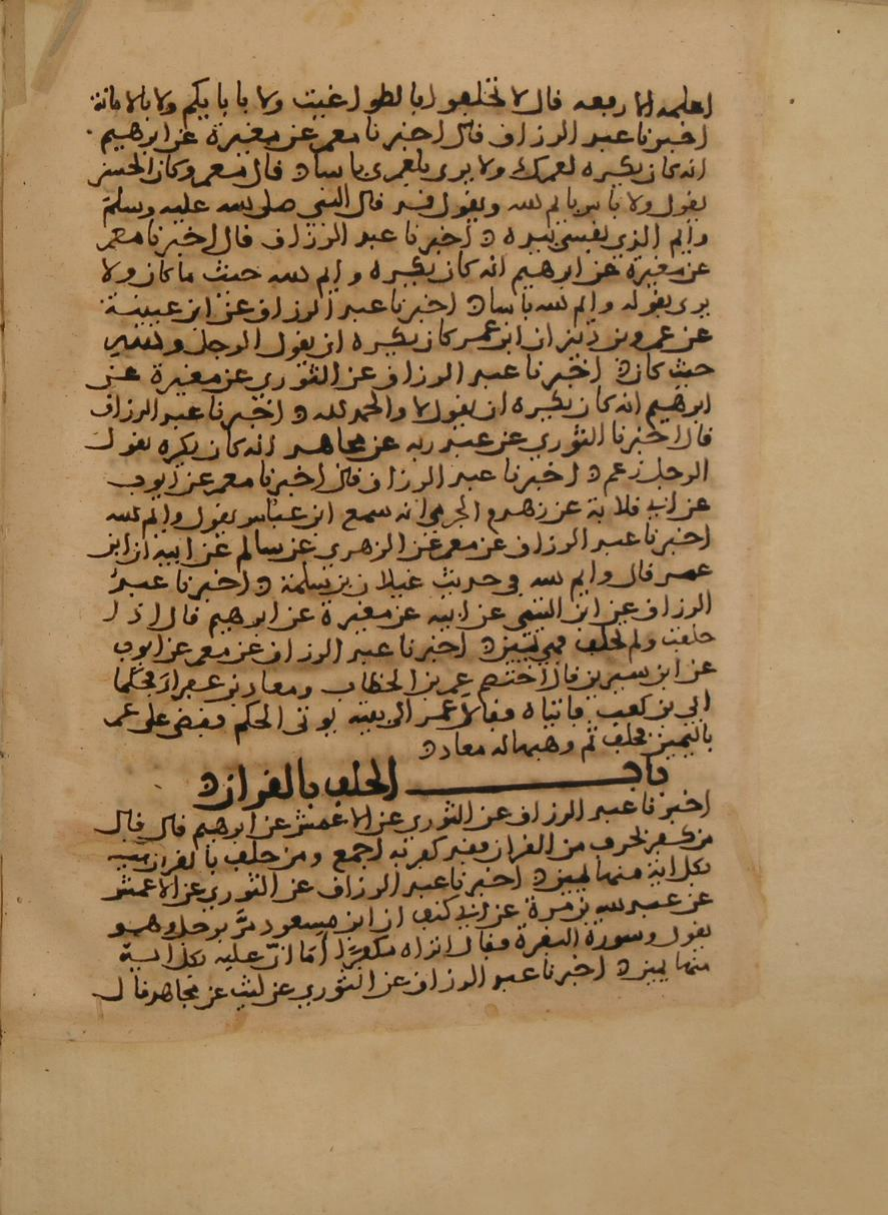 اعلمه الا رفعه قال لا تحلفوا بالطواغيت ولا بابايكم ولا بالامانة
اخبرنا عبد الرزاق قال اخبرنا معمر عن مغيرة عن ابرهيم
انه كان يكره لعمرك ولا يرى بلعمري باسا ه قال معمر وكان الحسن
يقول ولا باس بايم الله ويقول قد قال النبي صلى الله عليه وسلم
وايم الذي نفسي بيده ه اخبرنا عبد الرزاق قال اخبرنا معمر
عن مغيرة عن ابرهيم انه كان يكره وايم الله حيث ما كان ولا
يرى بقوله وايم الله باسا ه اخبرنا عبد الرزاق عن ابن عيينة
عن عمرو بن دينر ان ابن عمر كان يكره ان يقول الرجل والله
حيث كان ه اخبرنا عبد الرزاق عن الثوري عن مغيرة عن
ابرهيم انه كان يكره ان يقول لا والحمد لله ه اخبرنا عبد الرزاق
قال اخبرنا الثوري عن عبد ربه عن مجاهد انه كان يكره يقول
الرجل زعم ه اخبرنا عبد الرزاق قال اخبرنا معمر عن ايوب
عن ابي قلابة عن زهدم الجرمي انه سمع ابن عباس يقول وايم الله
اخبرنا عبد الرزاق عن معمر عن الزهري عن سالم عن ابيه ان ابن
عمر قال وايم الله في حديث غيلان بن سلمة ه اخبرنا عبد
الرزاق عن ابن التيمي عن ابيه عن مغيرة عن ابرهيم قال اذا
حلفت ولم تحلف فهي يمين ه اخبرنا عبد الرزاق عن معمر عن ايوب
عن ابن سيرين قال اختصم عمر بن الخطاب ومعاذ بن عفرا فحكما
ابي بن كعب فاتياه فقال عمر الى بيته يوتى الحكم فقضى على عمر
باليمين فحلف ثم وهبها له معاذ ه
باب الحلف بالقران ه
اخبرنا عبد الرزاق عن الثوري عن الاعمش عن ابرهيم قال قال
من كفر بحرف من القران فقد كفر به اجمع ومن حلف بالقران فعليه
بكل اية منها يمين ه اخبرنا عبد الرزاق عن الثوري عن الاعمش
عن عبد الله بن مرة عن ابي كنف ان ابن مسعود مر برجل وهو
يقول وسورة البقرة فقال اتراه مكفرا اما ان عليه بكل اية
منها يمين ه اخبرنا عبد الرزاق عن الثوري عن ليث عن مجاهد قال